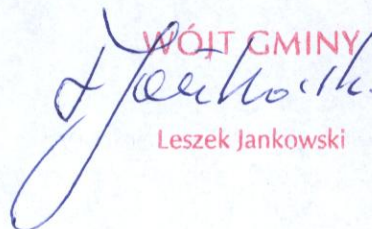 WÓJT GMINY
Leszek Jankowski